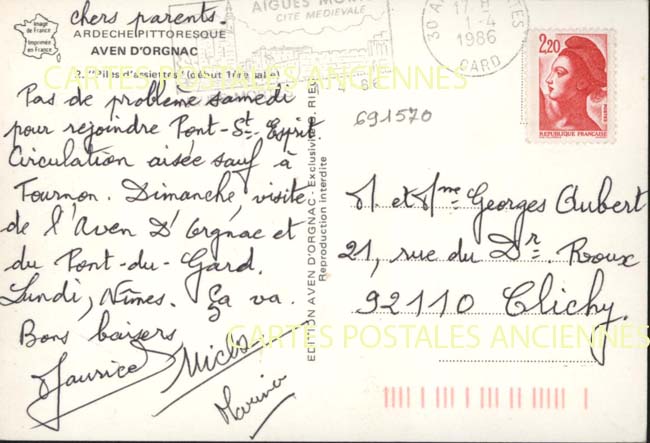 chers parents.
Image
de France
Imprimée
en France
ARDECHE PITTORESQUE
AVEN D'ORGNAC
2. "Piles d'assiettes" (début 1ère salle)
Pas de problème samedi
pour rejoindre Pont-St-Esprit
Circulation aisée sauf à
Tournon. Dimanche visite
de l'Aven D'Orgnac et
du Pont-du-Gard.
Lundi, Nîmes. Ça va.
Bons baisers
Maurice
EDITION AVEN D'ORGNAC - Exclusivité
Reproduction interdite
AIGUES MOR
CITE MEDIEVALE
30
17
1-4
1986
GARD
2,20
REPUBLIQUE FRANÇAISE
POSTES
691570
M. et Mme Georges Aubert
21, rue du Dr. Roux
92110 Clichy.
CARTES POSTALES ANCIENNES
CARTES POSTALES ANCIENNES